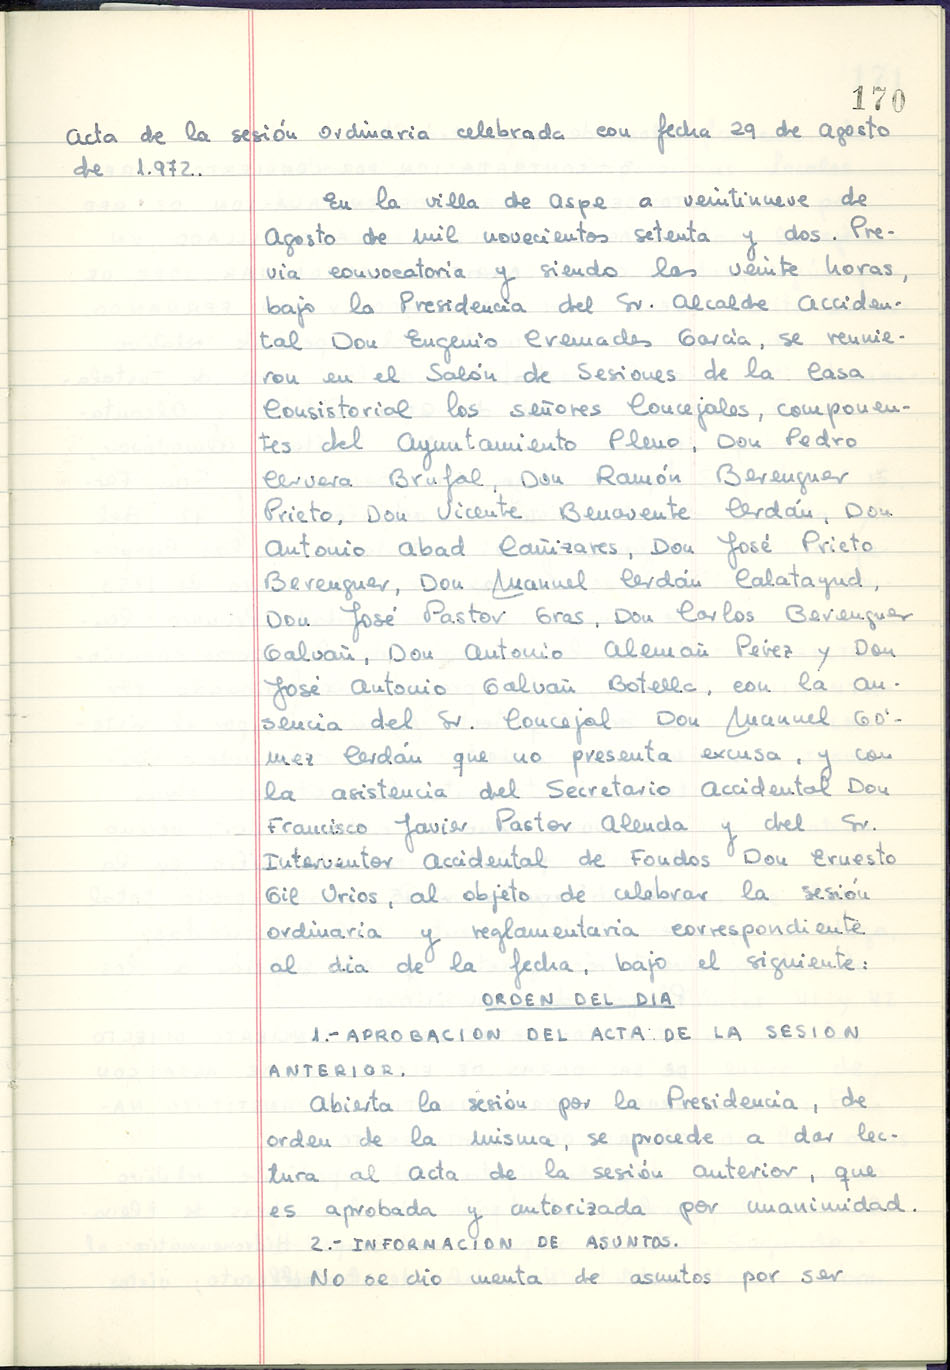 170
Acta de la sesión ordinaria celebrada con fecha 29 de Agosto
de 1.972..
En la villa de Aspe a veintinueve de
Agosto de mil novecientos setenta y dos. Pre-
via convocatoria y siendo las veinte horas,
bajo la Presidencia del Sr. Alcalde Acciden-
tal Don Eugenio Cremades García, se reunie-
ron en el Salón de Sesiones de la Casa
Consistorial los señores Concejales, componen-
tes del Ayuntamiento Pleno, Don Pedro
Cervera Brufal, Don Ramón Berenguer
Prieto, Don Vicente Benavente Cerdán, Don
Antonio Abad Cañizares, Don José Prieto
Berenguer, Don Manuel Cerdán Calatayud,
Don José Pastor Gras, Don Carlos Berenguer
Galvañ, Don Antonio Alemañ Pérez y Don
José Antonio Galvañ Botella, con la au-
sencia del Sr. Concejal Don Manuel Gó-
mez Cerdán que no presenta excusa, y con
la asistencia del Secretario Accidental Don
Francisco Javier Pastor Alenda y del Sr.
Interventor Accidental de Fondos Don Ernesto
Gil Urios, al objeto de celebrar la sesión
ordinaria y reglamentaria correspondiente
al dia de la fecha, bajo el siguiente:
ORDEN DEL DIA
1.- APROBACION DEL ACTA DE LA SESION
ANTERIOR.
Abierta la sesión por la Presidencia, de
orden de la misma, se procede a dar lec-
tura al acta de la sesión anterior, que
es aprobada y autorizada por unanimidad.
2.- INFORMACION DE ASUNTOS.
No se dio cuenta de asuntos por ser